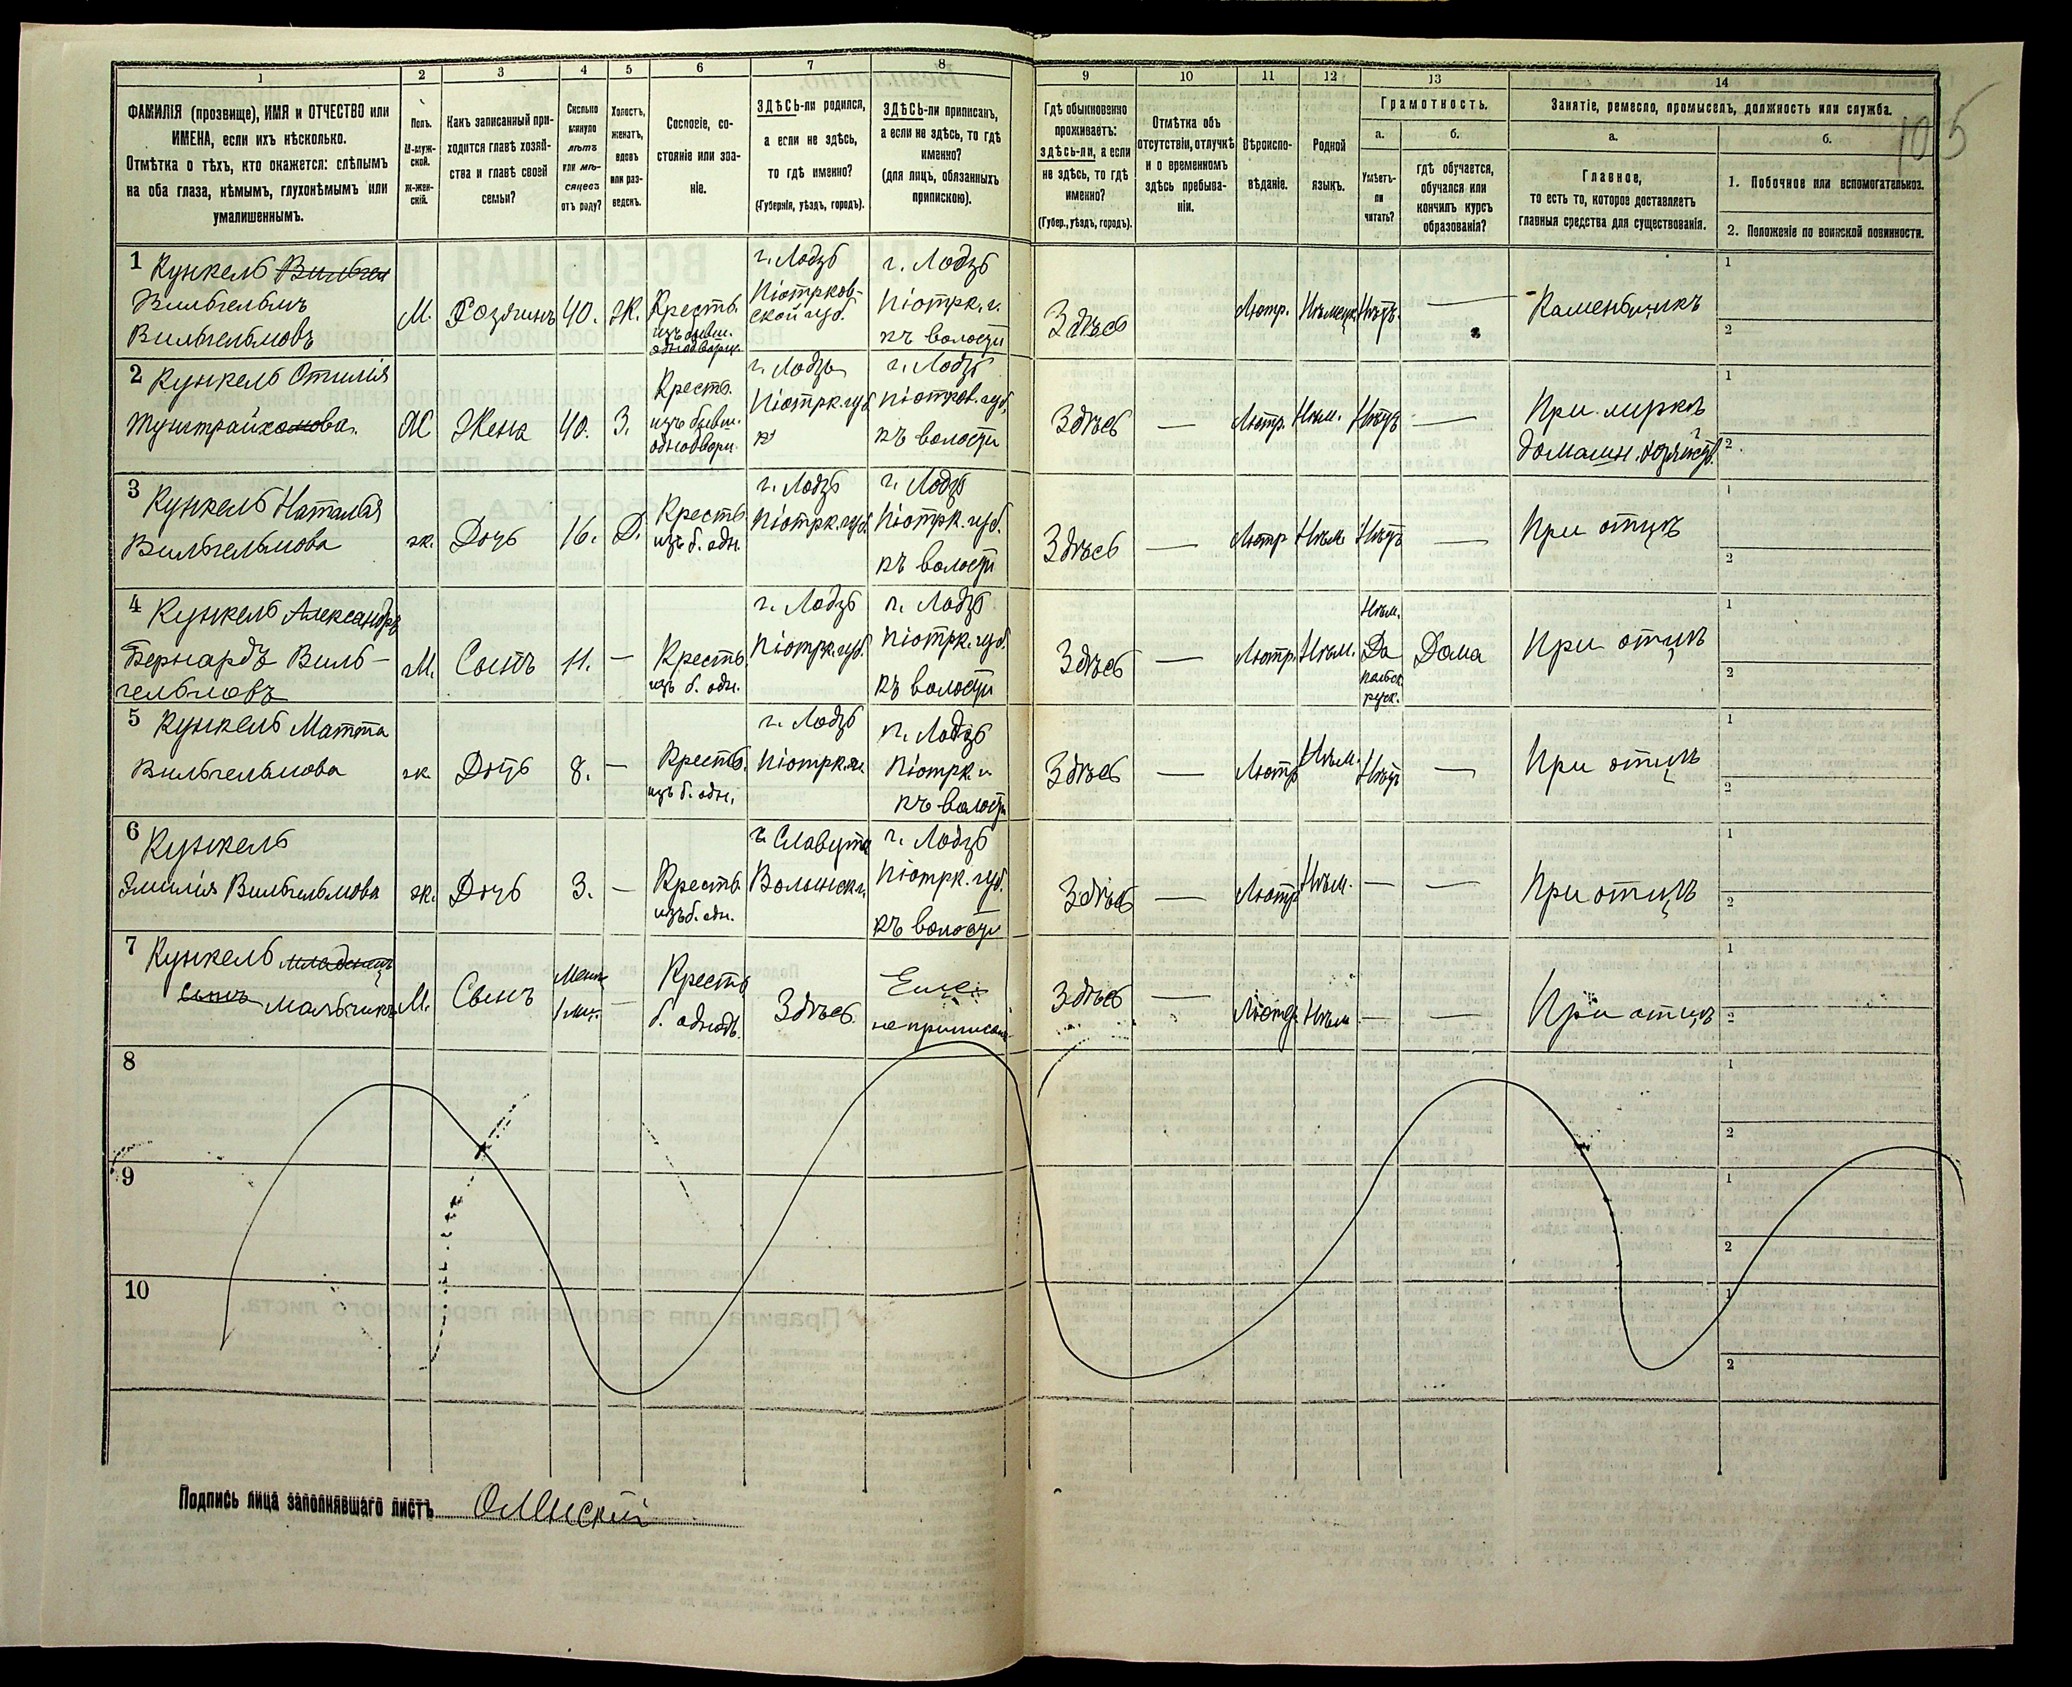 1 2 3 4 5 6 7 8 9 10 11 12 13 14
105
ФАМИЛІЯ (прозвище), ИМЯ и ОТЧЕСТВО или
ИМЕНА, если ихъ нѣсколько.
Отмѣтка о тѣхъ, кто окажется: слѣпымъ
на оба глаза, нѣмымъ, глухонѣмымъ или
умалишеннымъ.
Полъ.
М-муж-
ской.
Ж-жен-
скій.
Какъ записанный при-
ходится главѣ хозяй-
ства и главѣ своей
семьи?
Сколько
минуло
лѣтъ
или мѣ-
сяцевъ
отъ роду?
Холостъ,
женатъ,
вдовъ
или раз-
веденъ.
Сословіе, со-
стояніе или зва-
ніе.
ЗДѢСЬ-ли родился,
а если не здѣсь,
то гдѣ именно?
(Губернія, уѣздъ, городъ).
ЗДѢСЬ-ли приписанъ,
а если не здѣсь, то гдѣ
именно?
(для лицъ, обязанныхъ
припискою).
Гдѣ обыкновенно
проживаетъ:
здѣсь-ли, а если
не здѣсь, то гдѣ
именно?
(Губер., уѣздъ, городъ).
Отмѣтка объ
отсутствіи, отлучкѣ
и о временномъ
здѣсь пребыва-
ніи.
Вѣроиспо-
вѣданіе.
Родной
языкъ.
Грамотность.
а.
Умѣетъ-
ли
читать?
б.
гдѣ обучается,
обучался или
кончилъ курсъ
образованія?
Занятіе, ремесло, промыселъ, должность или служба.
а.
Главное,
то есть то, которое доставляетъ
главныя средства для существованія.
б.
1. Побочное или вспомогательное.
2. Положеніе по воинской повинности.
1 Кункель Вильгел
Вильгельмъ
Вильгельмовъ
М.
Хозяинъ
40.
Ж.
Крестьь.
изъ бывш.
однодворц.
г. Лодзь
Піотрков-
ской губ.
г. Лодзь
Піотрк. г.
къ волости
Здѣсь
Лютр.
Нѣмецк.
Нѣтъ.
Каменьщикъ
1
2
2 Кункель Отилія
Ж
Жена
40.
З.
Крестьь.
изъ бывш.
однодворц.
г. Лодзь
Піотрк. губ
г. Лодзь
Піотрков. губ,
къ волости
Здѣсь
—
Лютр.
Нѣм.
Нѣтъ
—
При мужѣ
домашн. хозяйств.
1
2
3 Кункель Наталья
Вильгельмова
ж.
Дочь
16.
Д.
Крестьь.
изъ б. одн.
г. Лодзь
Піотрк. губ.
г. Лодзь
Піотрк. губ.
къ волости
Здѣсь
—
Лютр
Нѣм.
Нѣтъ
—
При отцѣ
1
2
4 Кункель Александръ
Бернардъ Виль-
гельмовъ
М.
Сынъ
11.
—
Крестьь.
изъ б. одн.
г. Лодзь
Піотрк. губ.
г. Лодзь
Піотрк. губ.
къ волости
Здѣсь
—
Лютр.
Нѣм.
Нѣм.
Да
польск
русск.
Дома
При отцѣ
1
2
5 Кункель Матта
Вильгельмова
ж.
Дочь
8.
—
Крестьь.
изъ б. одн.
г. Лодзь
Піотрк. г.
г. Лодзь
Піотрк. г.
къ волости
Здѣсь
—
Лютр
Нѣм.
Нѣтъ
—
При отцѣ
1
2
6 Кункель
Эмилія Вильгельмова
ж.
Дочь
3.
—
Крестьь.
изъ б. одн.
г. Славута
Волынск. г.
г. Лодзь
Піотрк. губ.
къ волости
Здѣсь
—
Лютр
Нѣм.
—
—
При отцѣ
1
2
7 Кункель младенецъ
Сынъ мальчикъ
М.
Сынъ
Менѣе
1 мѣс.
—
Крестьь.
б. однодв.
Здѣсь.
Еще
не приписанъ
Здѣсь
—
Лютр.
Нѣм
—
—
При отцѣ
1
2
8
1
2
9
1
2
10
1
2
Подпись лица заполнявшаго листъ